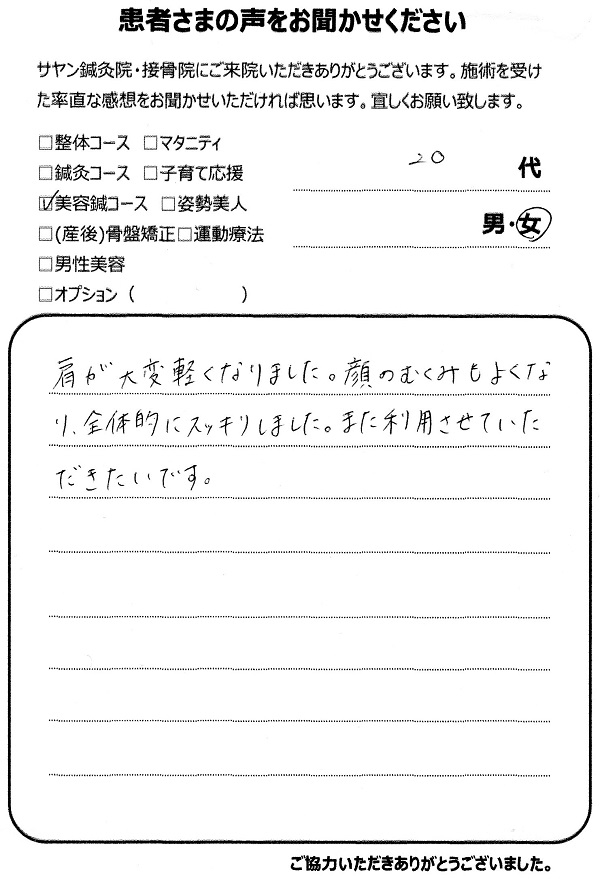 患者さまの声をお聞かせください
サヤン鍼灸院・接骨院にご来院いただきありがとうございます。施術を受け
た率直な感想をお聞かせいただければ思います。宜しくお願い致します。
□整体コース □マタニティ
□鍼灸コース □子育て応援
☑美容鍼コース □姿勢美人
□(産後)骨盤矯正□運動療法
□男性美容
□オプション ( )
20 代
男・女
肩が大変軽くなりました。顔のむくみもよくな
り、全体的にスッキリしました。また利用させていた
だきたいです。
ご協力いただきありがとうございました。